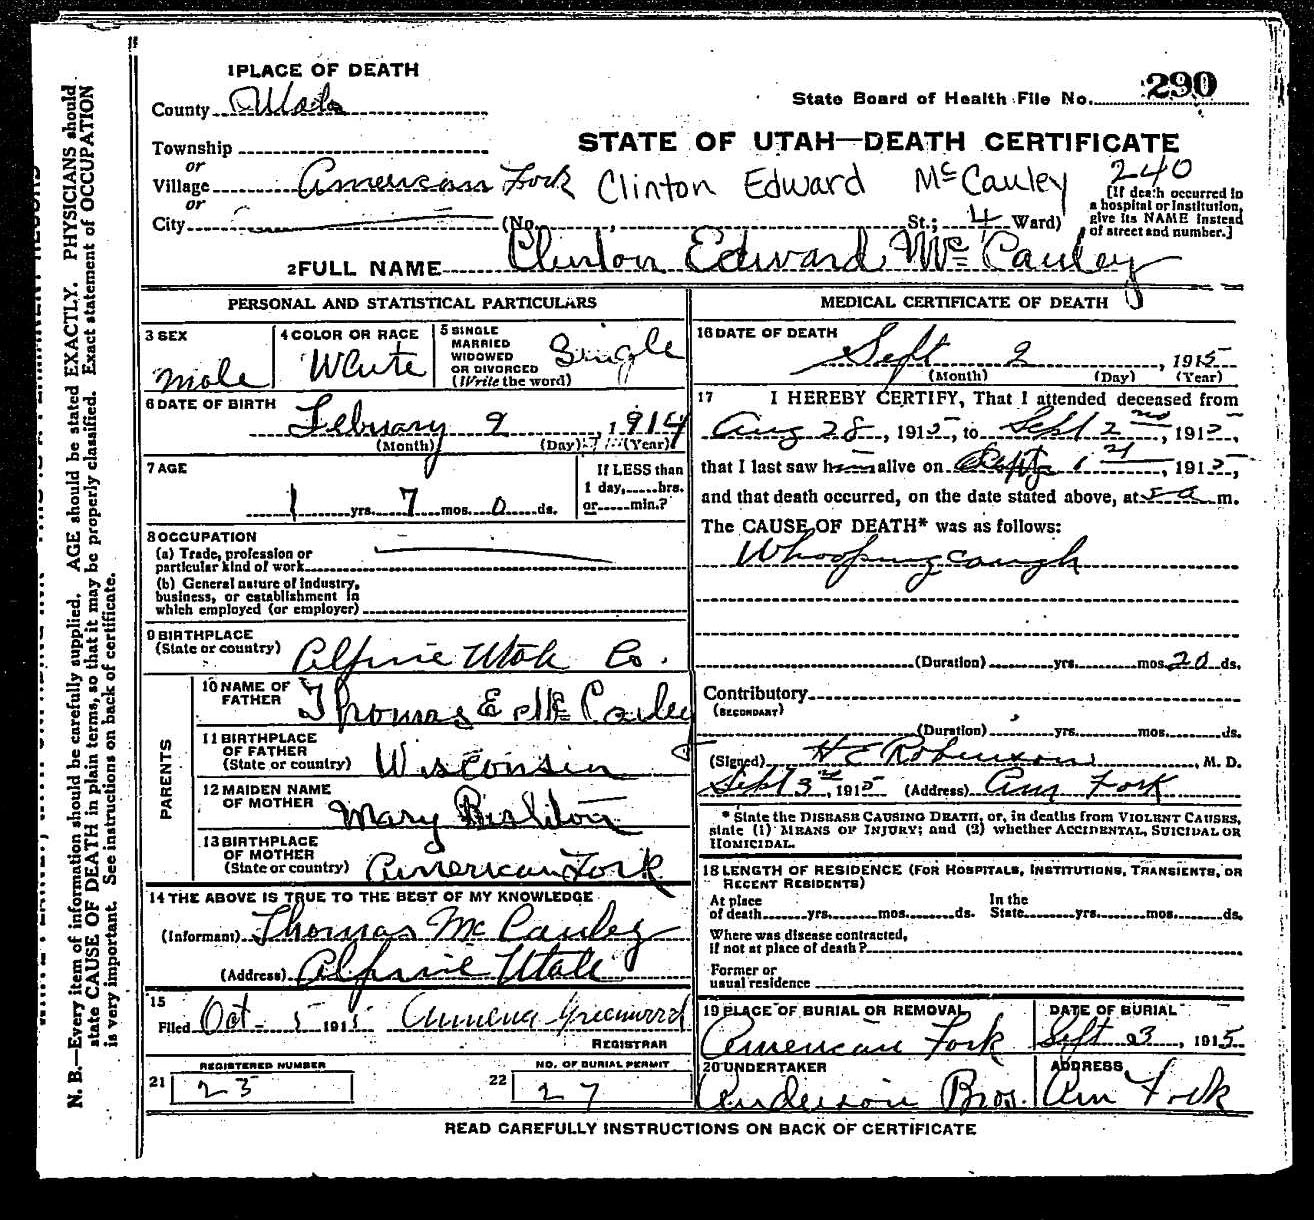 1 PLACE OF DEATH
County Utah
State Board of Health File No. 290
STATE OF UTAH—DEATH CERTIFICATE
Township
or
Village American Fork Clinton Edward McCauley 240
or
City (No. St.; 4 Ward)
[If death occurred in
a hospital or institution,
give its NAME instead
of street and number.]
2 FULL NAME Clinton Edward McCauley
PERSONAL AND STATISTICAL PARTICULARS
3 SEX
Male
4 COLOR OR RACE
White
5 SINGLE
MARRIED
WIDOWED
OR DIVORCED
(Write the word)
Single
6 DATE OF BIRTH
February 9, 1914
(Month) (Day) (Year)
7 AGE
1 yrs. 7 mos. 0 ds.
If LESS than
1 day, hrs.
or min.?
8 OCCUPATION
(a) Trade, profession or
particular kind of work
(b) General nature of industry,
business, or establishment in
which employed (or employer)
9 BIRTHPLACE
(State or country) Alpine Utah Co.
PARENTS
10 NAME OF
FATHER Thomas E McCauley
11 BIRTHPLACE
OF FATHER
(State or country) Wisconsin
12 MAIDEN NAME
OF MOTHER Mary
13 BIRTHPLACE
OF MOTHER
(State or country) American Fork
14 THE ABOVE IS TRUE TO THE BEST OF MY KNOWLEDGE
(Informant) Thomas McCauley
(Address) Alpine Utah
15
Filed Oct 5 1915 Greenwood
REGISTRAR
REGISTERED NUMBER
21 23
NO. OF BURIAL PERMIT
22 27
MEDICAL CERTIFICATE OF DEATH
16 DATE OF DEATH
Sept 2, 1915
(Month) (Day) (Year)
17 I HEREBY CERTIFY, That I attended deceased from
Aug 28, 1915, to Sept 2nd, 1915,
that I last saw him alive on Sept 1st, 1915,
and that death occurred, on the date stated above, at 5 a m.
The CAUSE OF DEATH* was as follows:
Whooping cough
(Duration) yrs. mos. 20 ds.
Contributory
(SECONDARY)
(Duration) yrs. mos. ds.
(Signed) H E Robinson, M. D.
Sept 3rd, 1915 (Address) Am Fork
* State the DISEASE CAUSING DEATH, or, in deaths from VIOLENT CAUSES,
state (1) MEANS OF INJURY; and (2) whether ACCIDENTAL, SUICIDAL OR
HOMICIDAL.
18 LENGTH OF RESIDENCE (FOR HOSPITALS, INSTITUTIONS, TRANSIENTS, OR
RECENT RESIDENTS)
At place
of death yrs. mos. ds.
In the
State yrs. mos. ds.
Where was disease contracted,
if not at place of death?
Former or
usual residence
19 PLACE OF BURIAL OR REMOVAL
American Fork
DATE OF BURIAL
Sept 3, 1915
20 UNDERTAKER
Anderson Bros.
ADDRESS
Am Fork
READ CAREFULLY INSTRUCTIONS ON BACK OF CERTIFICATE
N. B.—Every item of information should be carefully supplied. AGE should be stated EXACTLY. PHYSICIANS should
state CAUSE OF DEATH in plain terms, so that it may be properly classified. Exact statement of OCCUPATION
is very important. See instructions on back of certificate.